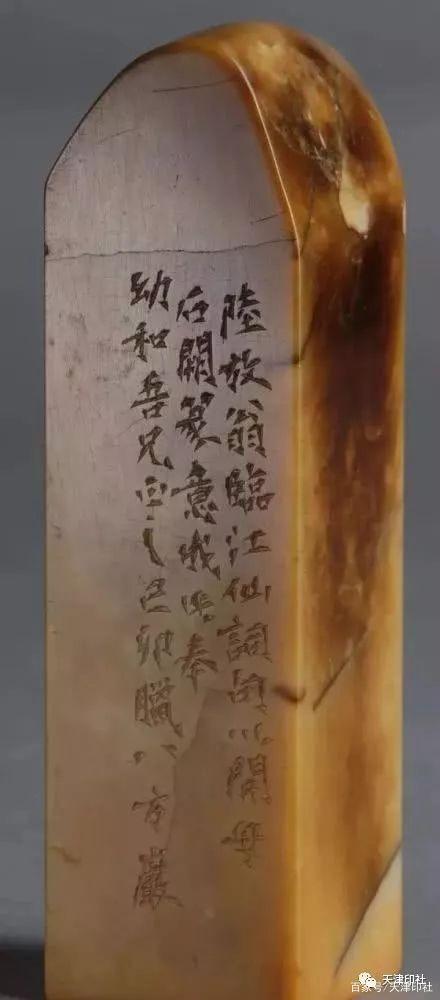 陸放翁臨江仙詞句以開母
石闕篆意成此奉
幼和吾兄正之己卯臘八方巖
天津印社
百家号/天津印社